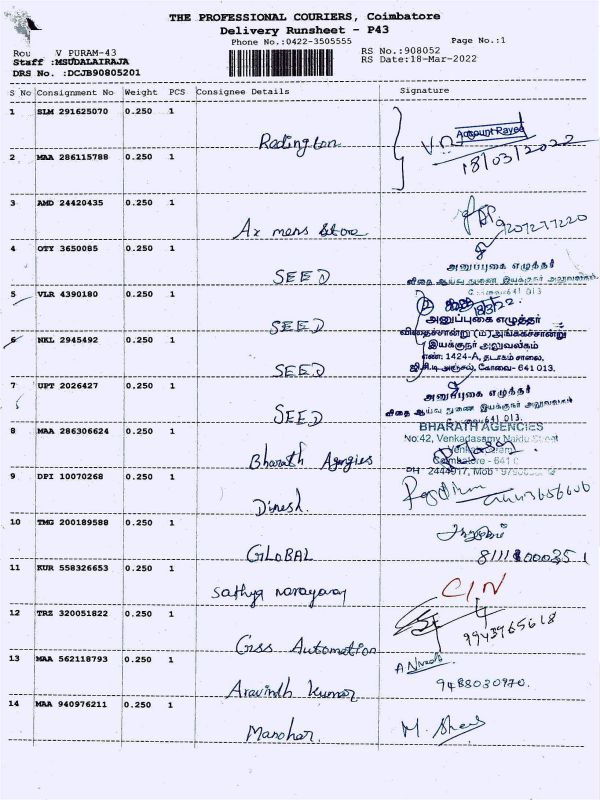 THE PROFESSIONAL COURIERS, Coimbatore
Delivery Runsheet - P43
Phone No.:0422-3505555
Page No.:1
V PURAM-43
RS No.:908052
Staff :MSUDALAIRAJA
RS Date:18-Mar-2022
DRS No. :DCJB90805201
S No Consignment No Weight PCS Consignee Details Signature
1 SLM 291625070 0.250 1
Redington
Account Payee
18/03/2022
2 MAA 286115788 0.250 1
3 AMD 24420435 0.250 1
Ax mens store
9207277220
4 OTY 3650085 0.250 1
SEED
அனுப்புகை எழுத்தர்
641 013
5 VLR 4390180 0.250 1
SEED
அனுப்புகை எழுத்தர்
விதைச்சான்று (ம) அங்ககச்சான்று
6 NKL 2945492 0.250 1
SEED
இயக்குநர் அலுவலகம்
எண்: 1424-A, தடாகம் சாலை,
ஜி.சி.டி அஞ்சல், கோவை- 641 013.
7 UPT 2026427 0.250 1
SEED
அனுப்புகை எழுத்தர்
641 013.
8 MAA 286306624 0.250 1
Bharath Agengies
BHARATH AGENCIES
No:42, Venkadasamy Naidu Street
Coimbatore - 641
PH 2444917, Mob
9 DPI 10070268 0.250 1
Dinesh.
10 TMG 200189588 0.250 1
GLOBAL
11 KUR 558326653 0.250 1
Sathya narayanan
12 TRZ 320051822 0.250 1
Automation
9943965618
13 MAA 562118793 0.250 1
Aravindh Kumar
9488030970.
14 MAA 940976211 0.250 1
Manohar